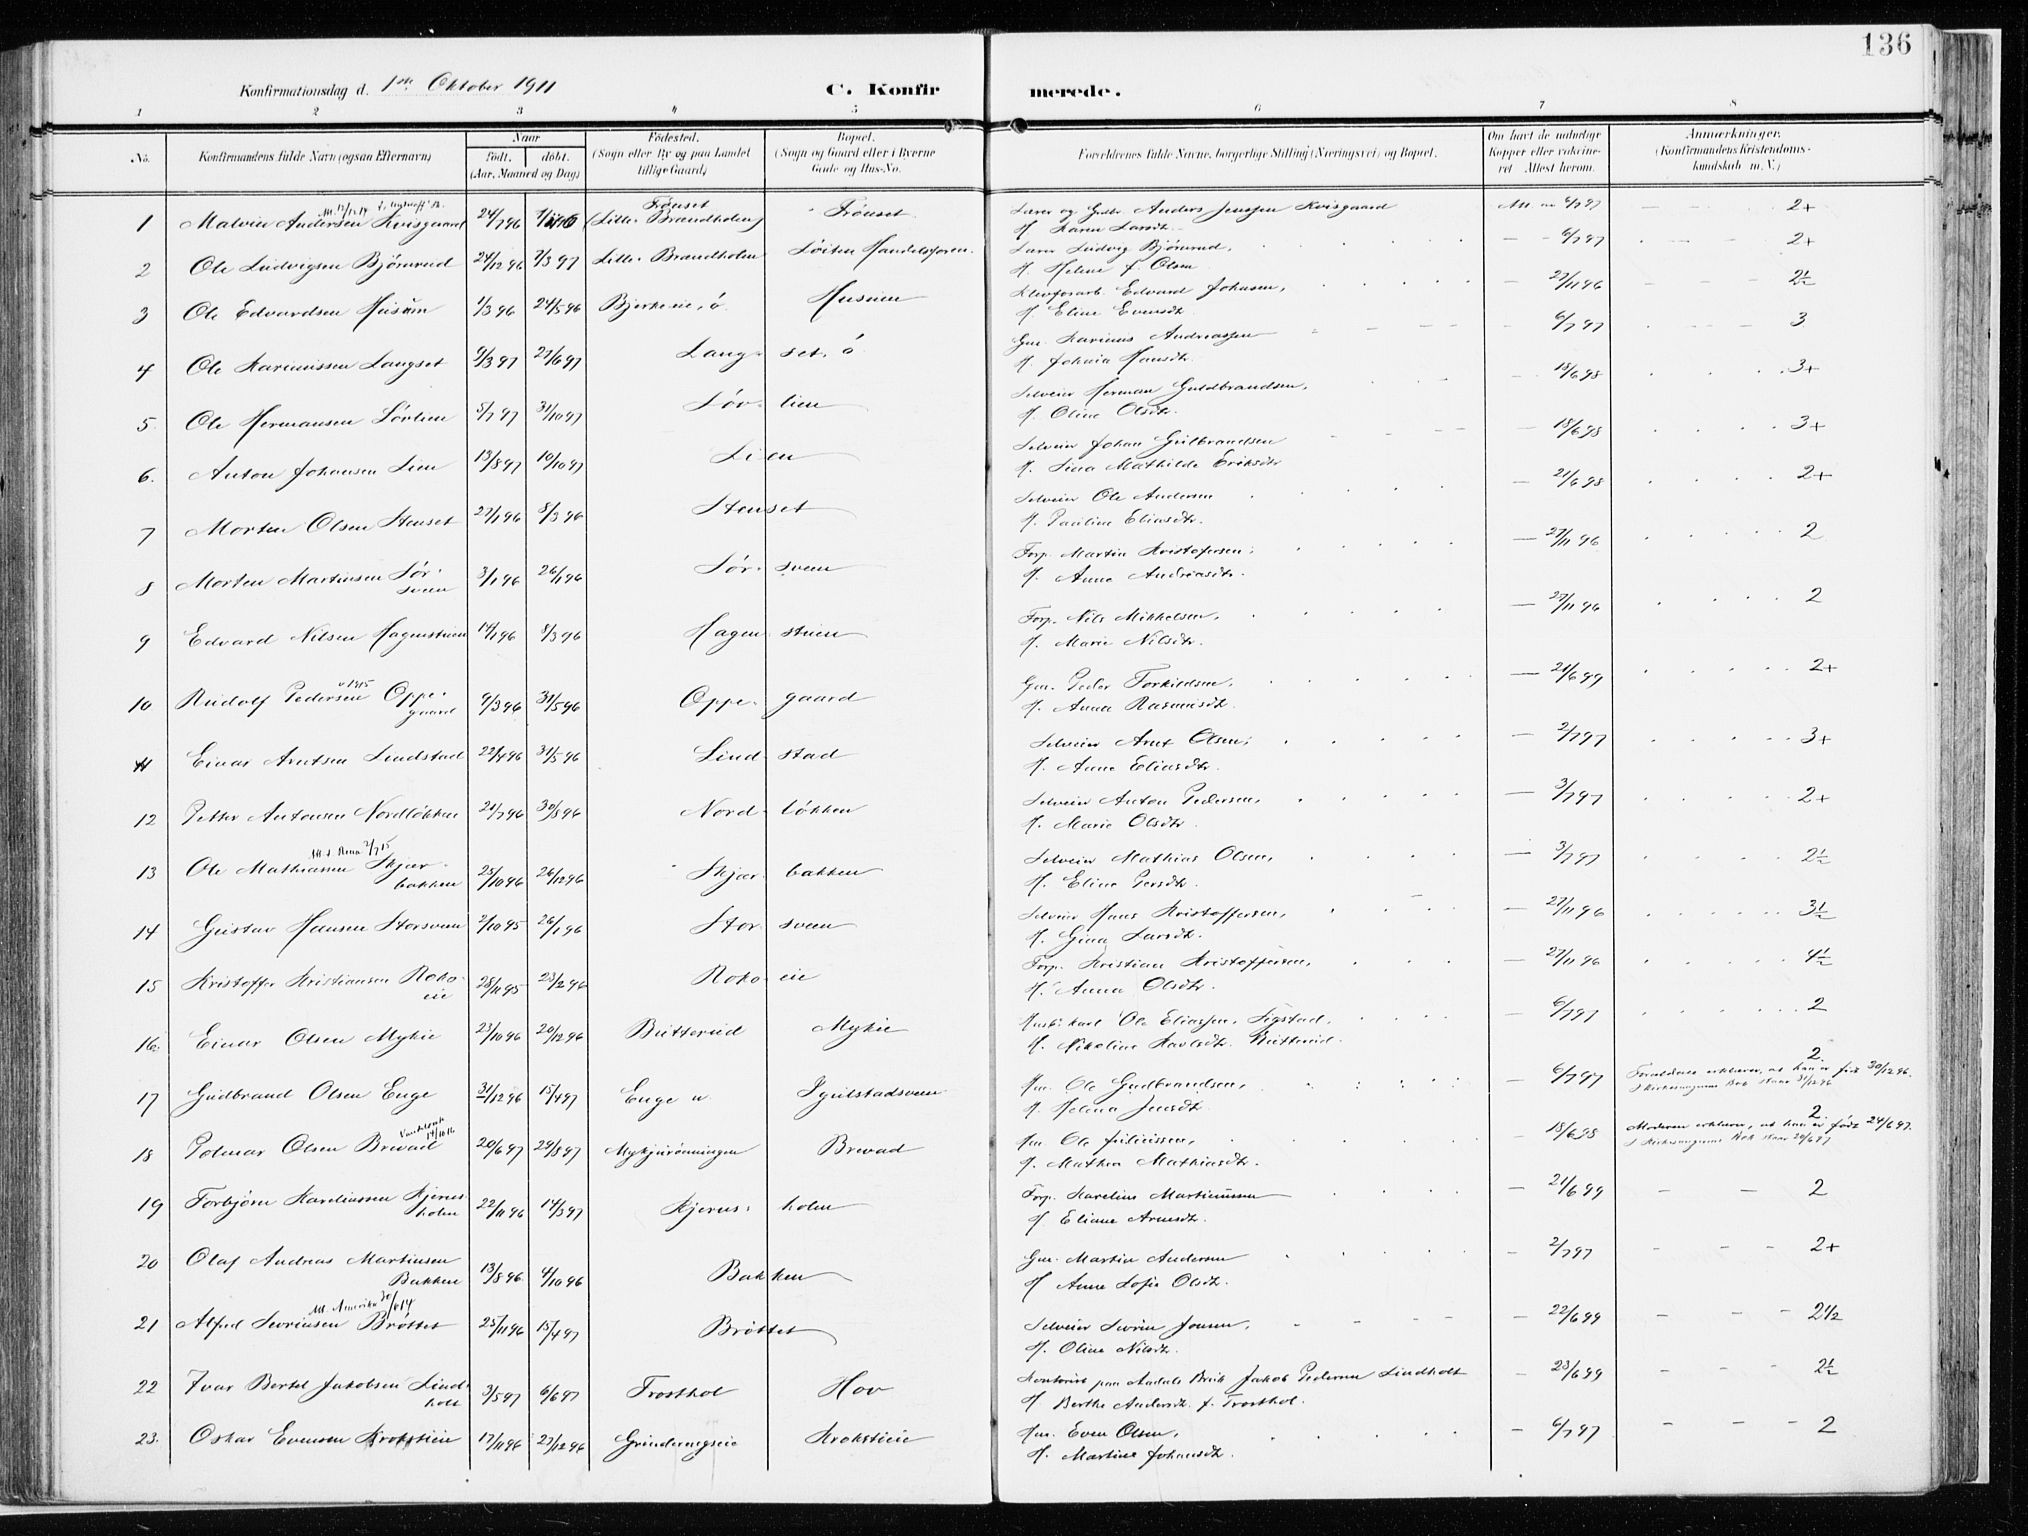 136
Konfirmationsdag d. 1ste Oktober 1911 C. Konfirmerede.
1 2 3 4 5 6 7 8
No. Konfirmandens fulde Navn (ogsaa Efternavn) Naar født, døbt. (Aar, Maaned og Dag) Fødested. (Sogn eller By og paa Landet tillige Gaard) Bopæl. (Sogn og Gaard eller i Byerne Gade og Hus-No. Forældrenes fulde Navne, borgerlige Stilling (Næringsvei) og Bopæl. Om havt de naturlige Kopper eller vaksineret Attest herom. Anmærkninger. (Konfirmandens Kristendomskundskab m. V.)
1 Malvin Andersen Kvisgaard 24/7 96 Frønset (Lille Brændholen) Frønset Lærer og Grdbr. Anders Jenssen Kvisgaard 6/7 97 2+
H. Karen Larsdtr.
2 Ole Ludvigsen Bjørnrud 24/12 96 7/3 97 Lille Brændholen Løiten Handelsforen. Lærer Ludvig Bjørnrud, 6/7 97 2+
H. Helene f. Olsen
3 Ole Edvardsen Husum 1/3 96 24/5 96 Bjerkeeie, ø. Husum Edvard Johnsen, 27/11 96 2½
H. Eline Evensdtr.
4 Ole Karinussen Langset 9/3 97 27/6 97 Langset, ø Gm. Karinus Andreassen 6/7 97 3
H. Johnia Hansdtr.
5 Ole Hermansen Sørlien 5/7 97 31/10 97 Sørlien Selveier Herman Guldbrandsen, 18/6 98 3+
H. Oline Olsdtr.
6. Anton Johansen Lien 13/8 97 10/10 97 Lien Selveier Johan Gulbrandsen 18/6 98 3+
H. Lina Mathilde Eriksdtr
7 Morten Olsen Stenset 22/1 96 8/3 96 Stenset Selveier Ole Andersen 21/6 98 2+
H. Pauline Eliasdtr.
8 Morten Martinsen Sørsveen 3/1 96 26/1 96 Sørsveen Forp. Martin Kristofersen, 27/11 96 2
H. Anne Andreasdtr.
9 Edvard Nilsen Hagenstuen 14/1 96 8/3 96 Hagenstuen Forp. Nils Mikkelsen, 27/11 96 2
H. Marie Nilsdtr.
10 Rudolf Pedersen Oppegaard 9/3 96 31/5 96 Oppegaard Gm. Peder Torkildsen, 21/6 99 2+
H. Anna Rasmusdtr.
11 Einar Arntsen Lindstad 22/4 96 31/5 96 Lindstad Selveier Arnt Olsen, 2/7 97 3+
H. Anne Eliasdtr.
12 Petter Antonsen Nordløkken 21/7 96 30/8 96 Nordløkken Selveier Anton Pedersen, 3/7 97 2+
H. Marie Olsdtr.
Att. t. Rena 2/7 15
13 Ole Mathiassen Skjærbakken 23/10 96 26/12 96 Skjærbakken Selveier Mathias Olsen, 3/7 97 2½
H. Eline Persdtr.
14 Gustav Hansen Storsveen 2/10 95 26/1 96 Storsveen Selveier Hans Kristoffersen, 27/11 96 3½
H. Gina Larsdtr.
15 Kristoffer Kristiansen Rokoeie 28/11 95 23/2 96 Rokoeie Forp. Kristian Kristoffersen, 27/11 96 4½
H. Anna Olsdtr.
16. Einar Olsen Mykie 23/10 96 20/12 96 Butterud Mykie Ole Eliassen, Sigstad, 6/7 97 2
H. Nikoline Karlsdtr. Butterud.
17 Gudbrand Olsen Enge 31/12 96 15/4 97 Enge n Igulstadsveen Hm. Ole Gudbrandsen, 6/7 97 2.
H. Helena Jensdtr. Forældrene erklærer, at han er født 30/12 96. I Kirkesangerens Bok staar 31/12 96
18 Polmar Olsen Brevad 20/6 97 29/8 97 Mykjurønningen Brevad Hm. Ole Juliussen, 18/6 98 2
H. Mathea Mathiasdtr. Moderen erklærer, at han er født 24/6 97. I Kirkesangerens Bok staar 20/6 97
19 Torbjørn Kareliussen Kjernsholen 22/11 96 14/3 97 Kjernsholen Forp. Karelius Martinussen 21/6 99 2
H. Eliane Arnesdtr.
20 Olaf Andreas Martinsen Bakken 13/8 96 4/10 96 Bakken Gm. Martin Andersen 2/7 97 2+
H Anne Sofie Olsdtr.
Att. Amerika
21 Alfred Sevrinsen Brøttet 25/11 96 15/4 97 Brøttet Selveier Sevrin Jonsen, 22/6 99 2½
H. Oline Nilsdtr.
22 Ivar Bertel Jakobsen Lindholt 3/5 97 6/6 97 Frosthol Hov Kontorist paa Aadals Bruk Jakob Pedersen Lindholt 23/6 99 2½
H Berthe Andersdtr. f. Frosthol.
23. Oskar Evensen Krokstieie 17/11 96 27/12 96 Grindernegseie Krokstieie Hm. Even Olsen, 6/7 97 2
H. Martine Johansdtr.